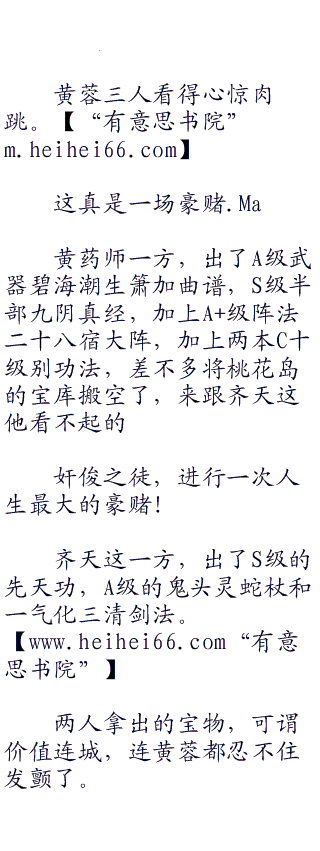 黄蓉三人看得心惊肉
跳。【“有意思书院”
m.heihei66.com】
这真是一场豪赌.Ma
黄药师一方，出了A级武
器碧海潮生箫加曲谱，S级半
部九阴真经，加上A+级阵法
二十八宿大阵，加上两本C十
级别功法，差不多将桃花岛
的宝库搬空了，来跟齐天这
他看不起的
奸俊之徒，进行一次人
生最大的豪赌!
齐天这一方，出了S级的
先天功，A级的鬼头灵蛇杖和
一气化三清剑法。
【www.heihei66.com“有意
思书院”】
两人拿出的宝物，可谓
价值连城，连黄蓉都忍不住
发颤了。